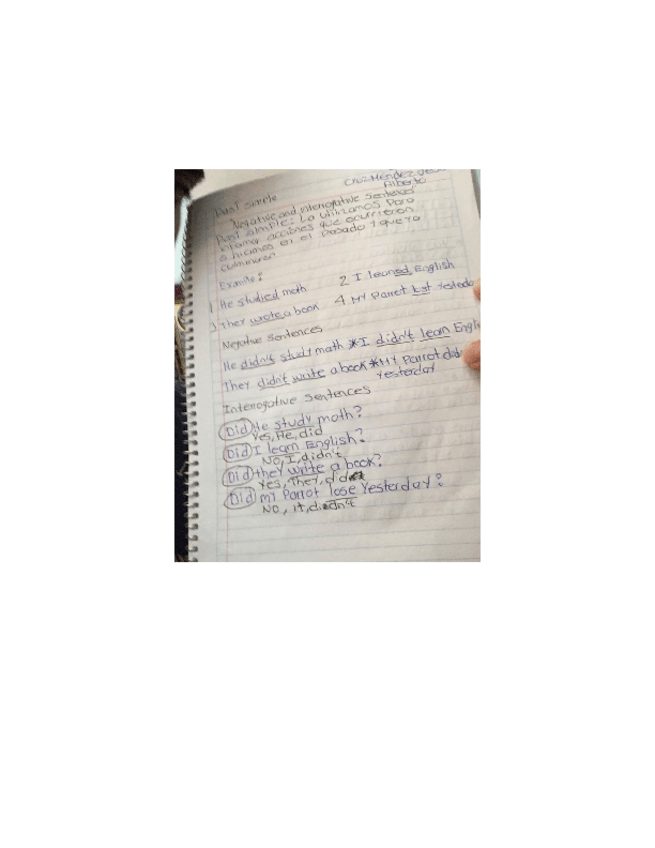 Cruz Mendez
Alberto
Past simple
Negative and interrogative Sentences
Past simple: La utilizamos Para
informar acciones que ocurrieron
o hicimos en el Pasado y que ya
culminaron
Examle:
1 He studied math 2 I learned English
3 They wrote a book 4 MY Parrot lost Yesterda
Negative Sentences
He didn't study math *I didn't learn Engli
They didn't write a book *MY Parrot did
Yesterday
Interrogative Sentences
Did He study math?
Yes, He, did
Did I learn English?
No, I, didn't
Did they write a book?
Yes, They, did
Did my Parrot lose Yesterday?
No, it, didn't